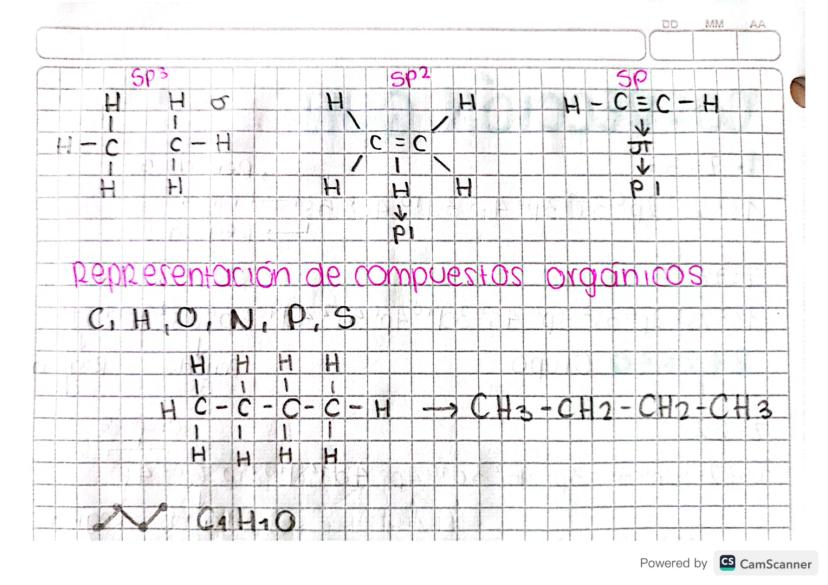 DD MM AA
Sp³ Sp² Sp
H H σ H H H - C ≡ C - H
H - C C - H C = C π
H H H H H P I
PI
Representación de compuestos orgánicos
C, H, O, N, P, S
H H H H
H C - C - C - C - H → CH3 - CH2 - CH2 - CH3
H H H H
C4H10
Powered by CS CamScanner